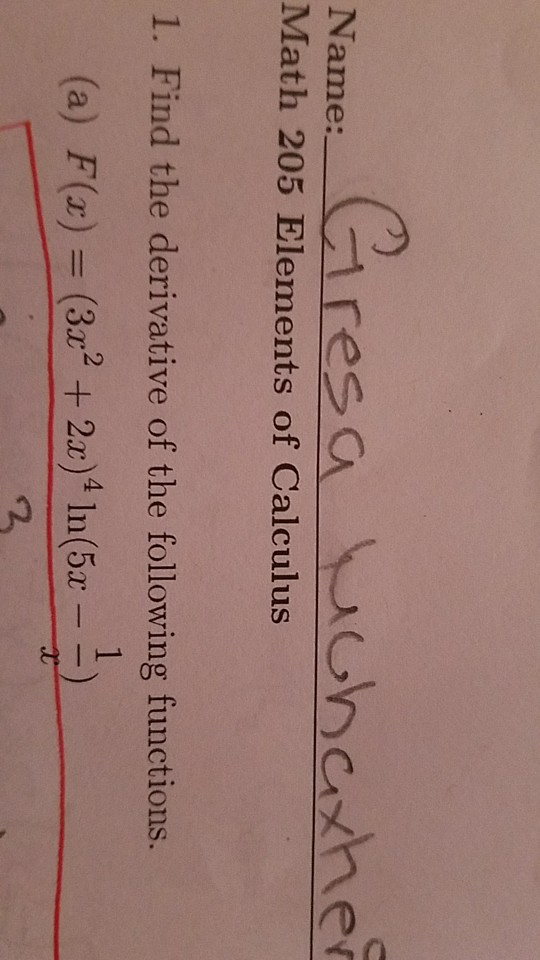 Name: Gresa
Math 205 Elements of Calculus
1. Find the derivative of the following functions.
(a) F(x) = (3x² + 2x)⁴ ln(5x − 1/x)
3